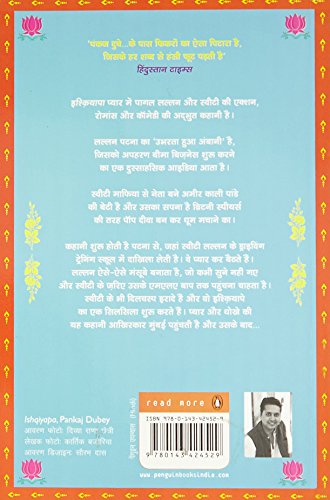 'पंकज दुबे...के पास फिकरों का ऐसा पिटारा है,
जिसके हर शब्द से हंसी फूट पड़ती है'
हिंदुस्तान टाइम्स
इश्क़ियापा प्यार में पागल लल्लन और स्वीटी की एक्शन,
रोमांस और कॉमेडी की अद्भुत कहानी है।
लल्लन पटना का 'उभरता हुआ अंबानी' है,
जिसको अपहरण बीमा बिज़नेस शुरू करने
का एक दुस्साहसिक आइडिया आता है।
स्वीटी माफिया से नेता बने अमीर काली पांडे
की बेटी है और उसका सपना है ब्रिटनी स्पीयर्स
की तरह पॉप दीवा बन कर धूम मचाने का।
कहानी शुरू होती है पटना से, जहां स्वीटी लल्लन के ड्राइविंग
ट्रेनिंग स्कूल में दाखिला लेती है। वे प्यार कर बैठते हैं।
लल्लन ऐसे-ऐसे मंसूबे बनाता है, जो कभी सुने नहीं गए
और स्वीटी के जरिए उसके एमएलए बाप तक पहुंचना चाहता है।
स्वीटी के भी दिलचस्प इरादे हैं और वो इश्क़ियापे
का एक सिलसिला शुरू करते हैं। प्यार और धोखे की
यह कहानी आखिरकार मुंबई पहुंचती है और उसके बाद...
Ishqiyapa, Pankaj Dubey
आवरण फोटो: दिव्या राणा खत्री
लेखक फोटो: कार्तिक बजोरिया
आवरण डिज़ाइन: सौरभ दास
read more
पेंगुइन उपन्यास (Hindi)
ISBN 978-0-143-42452-9
9 780143 424529
www.penguinbooksindia.com